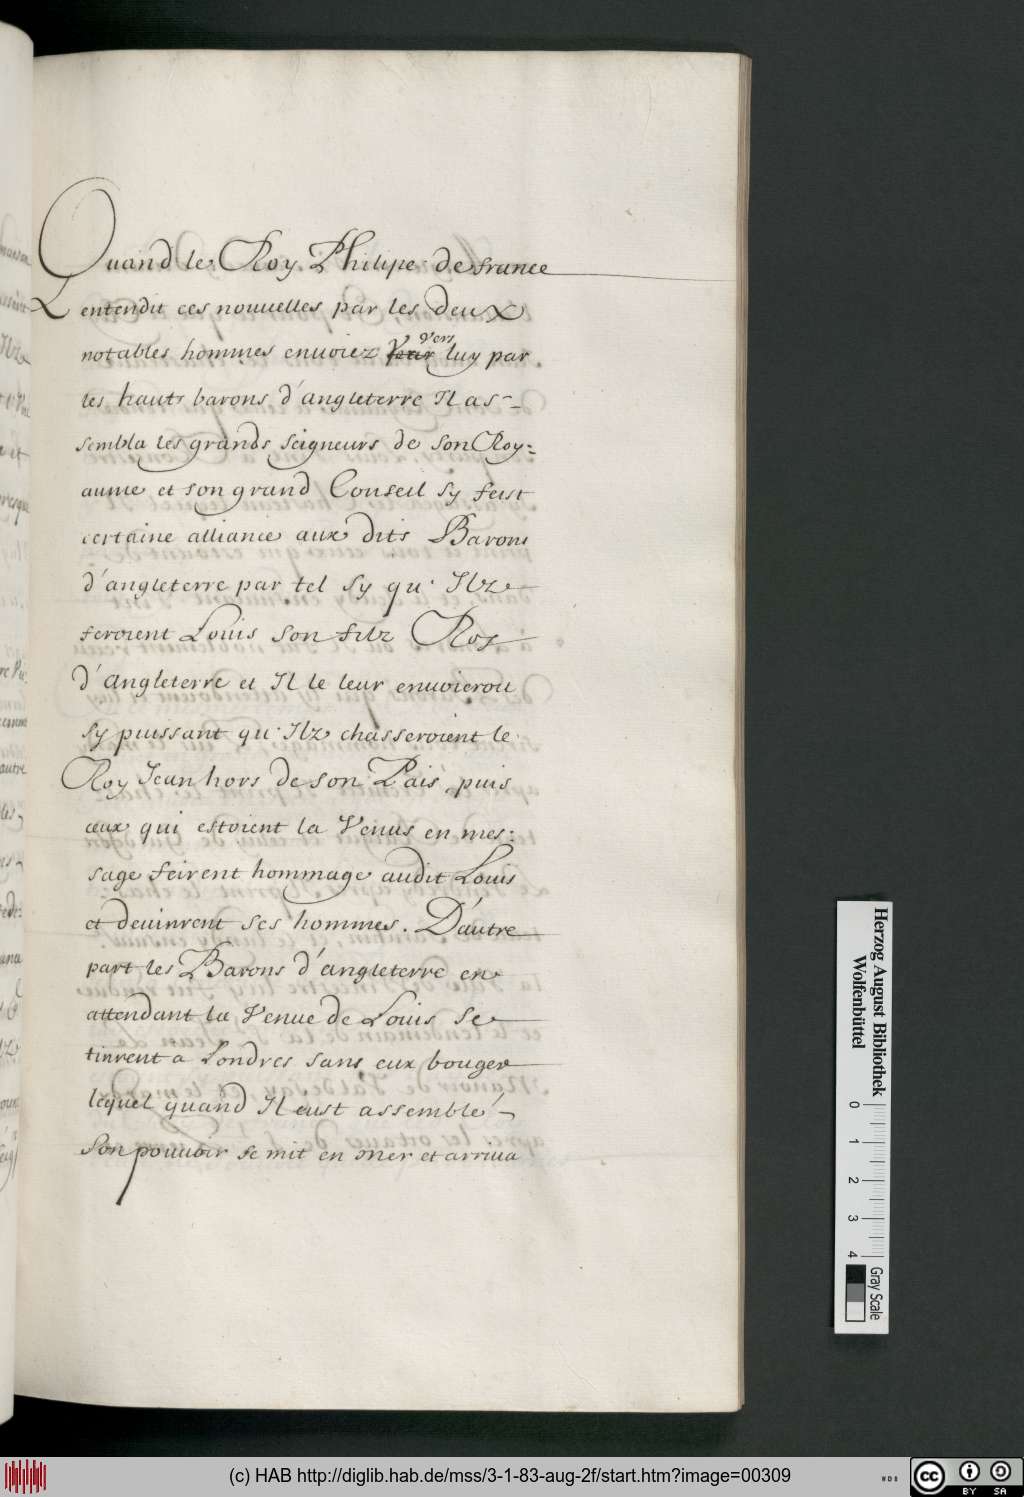 Quand le Roy Philipe de france
entendit ces nouuelles par les deux
notables hommes enuoiez vers luy par
les hauts barons d'angleterre Il as-
sembla les grands seigneurs de son Roy=
aume et son grand Conseil sy feist
certaine alliance aux dits Barons
d'angleterre par tel sy qu'Ilz
feroient Louis son filz Roy
d'angleterre et Il le leur enuoieroit
sy puissant qu'Ilz chasseroient le
Roy Jean hors de son Païs, puis
ceux qui estoient la Venus en mes:
sage feirent hommage audit Louis
et deuinrent ses hommes. D'autre
part les Barons d'angleterre en
attendant la Venue de Louis se
tinrent a Londres sans eux bouger
lequel quand Il eust assemblé
son pouuoir se mit en mer et arriua
Herzog August Bibliothek
Wolfenbüttel
0 1 2 3 4
Gray Scale
(c) HAB http://diglib.hab.de/mss/3-1-83-aug-2f/start.htm?image=00309
cc BY SA